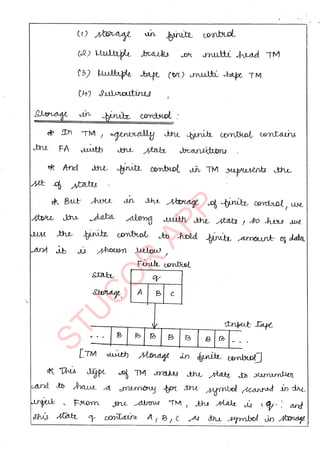 (1) storage in finite control
(2) Multiple tracks or multi head TM
(3) Multiple tape (or) multi tape TM
(4) Subroutines.
Storage in finite control :
* In TM, generally the finite control contains
the FA with the state transition.
* And the finite control in TM represents the
set of states.
* But here in the storage of finite control, we
store the data along with the state, so here we
use the finite control to hold finite amount of data
and it is shown below
Finite control
State q
Storage A B C
Input Tape
- - - B B B B B B B - - -
[TM with storage in finite control]
* This type of TM makes the state to remember
and to have a memory for the symbol scanned in the
input. From the above TM, the state is 'q' and
this state q contains A, B, C as the symbol in storage
STUCOR APP